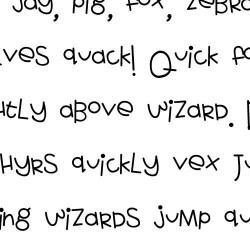 Jay, pig, fox, zebra
ves quack! Quick fo
htly above wizard.
hyrs quickly vex Ju
ing wizards jump qu